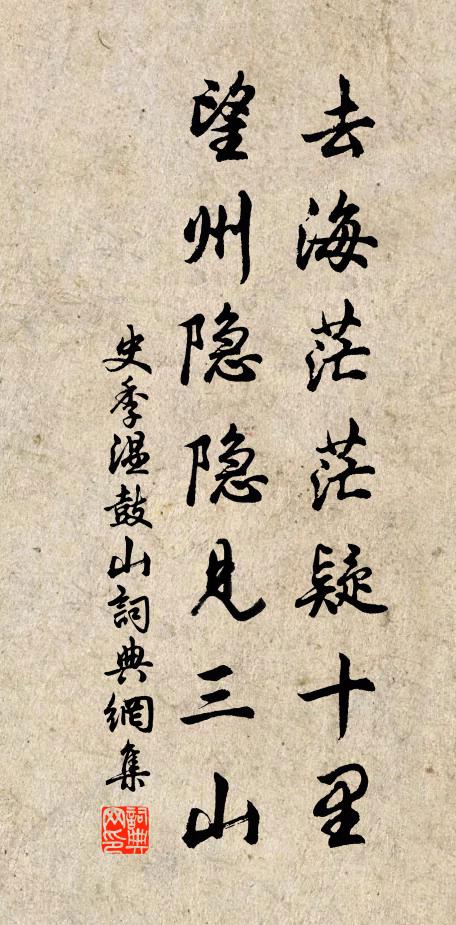 去海茫茫疑十里
望州隐隐見三山
史季温鼓山詞典網集
詞典网印